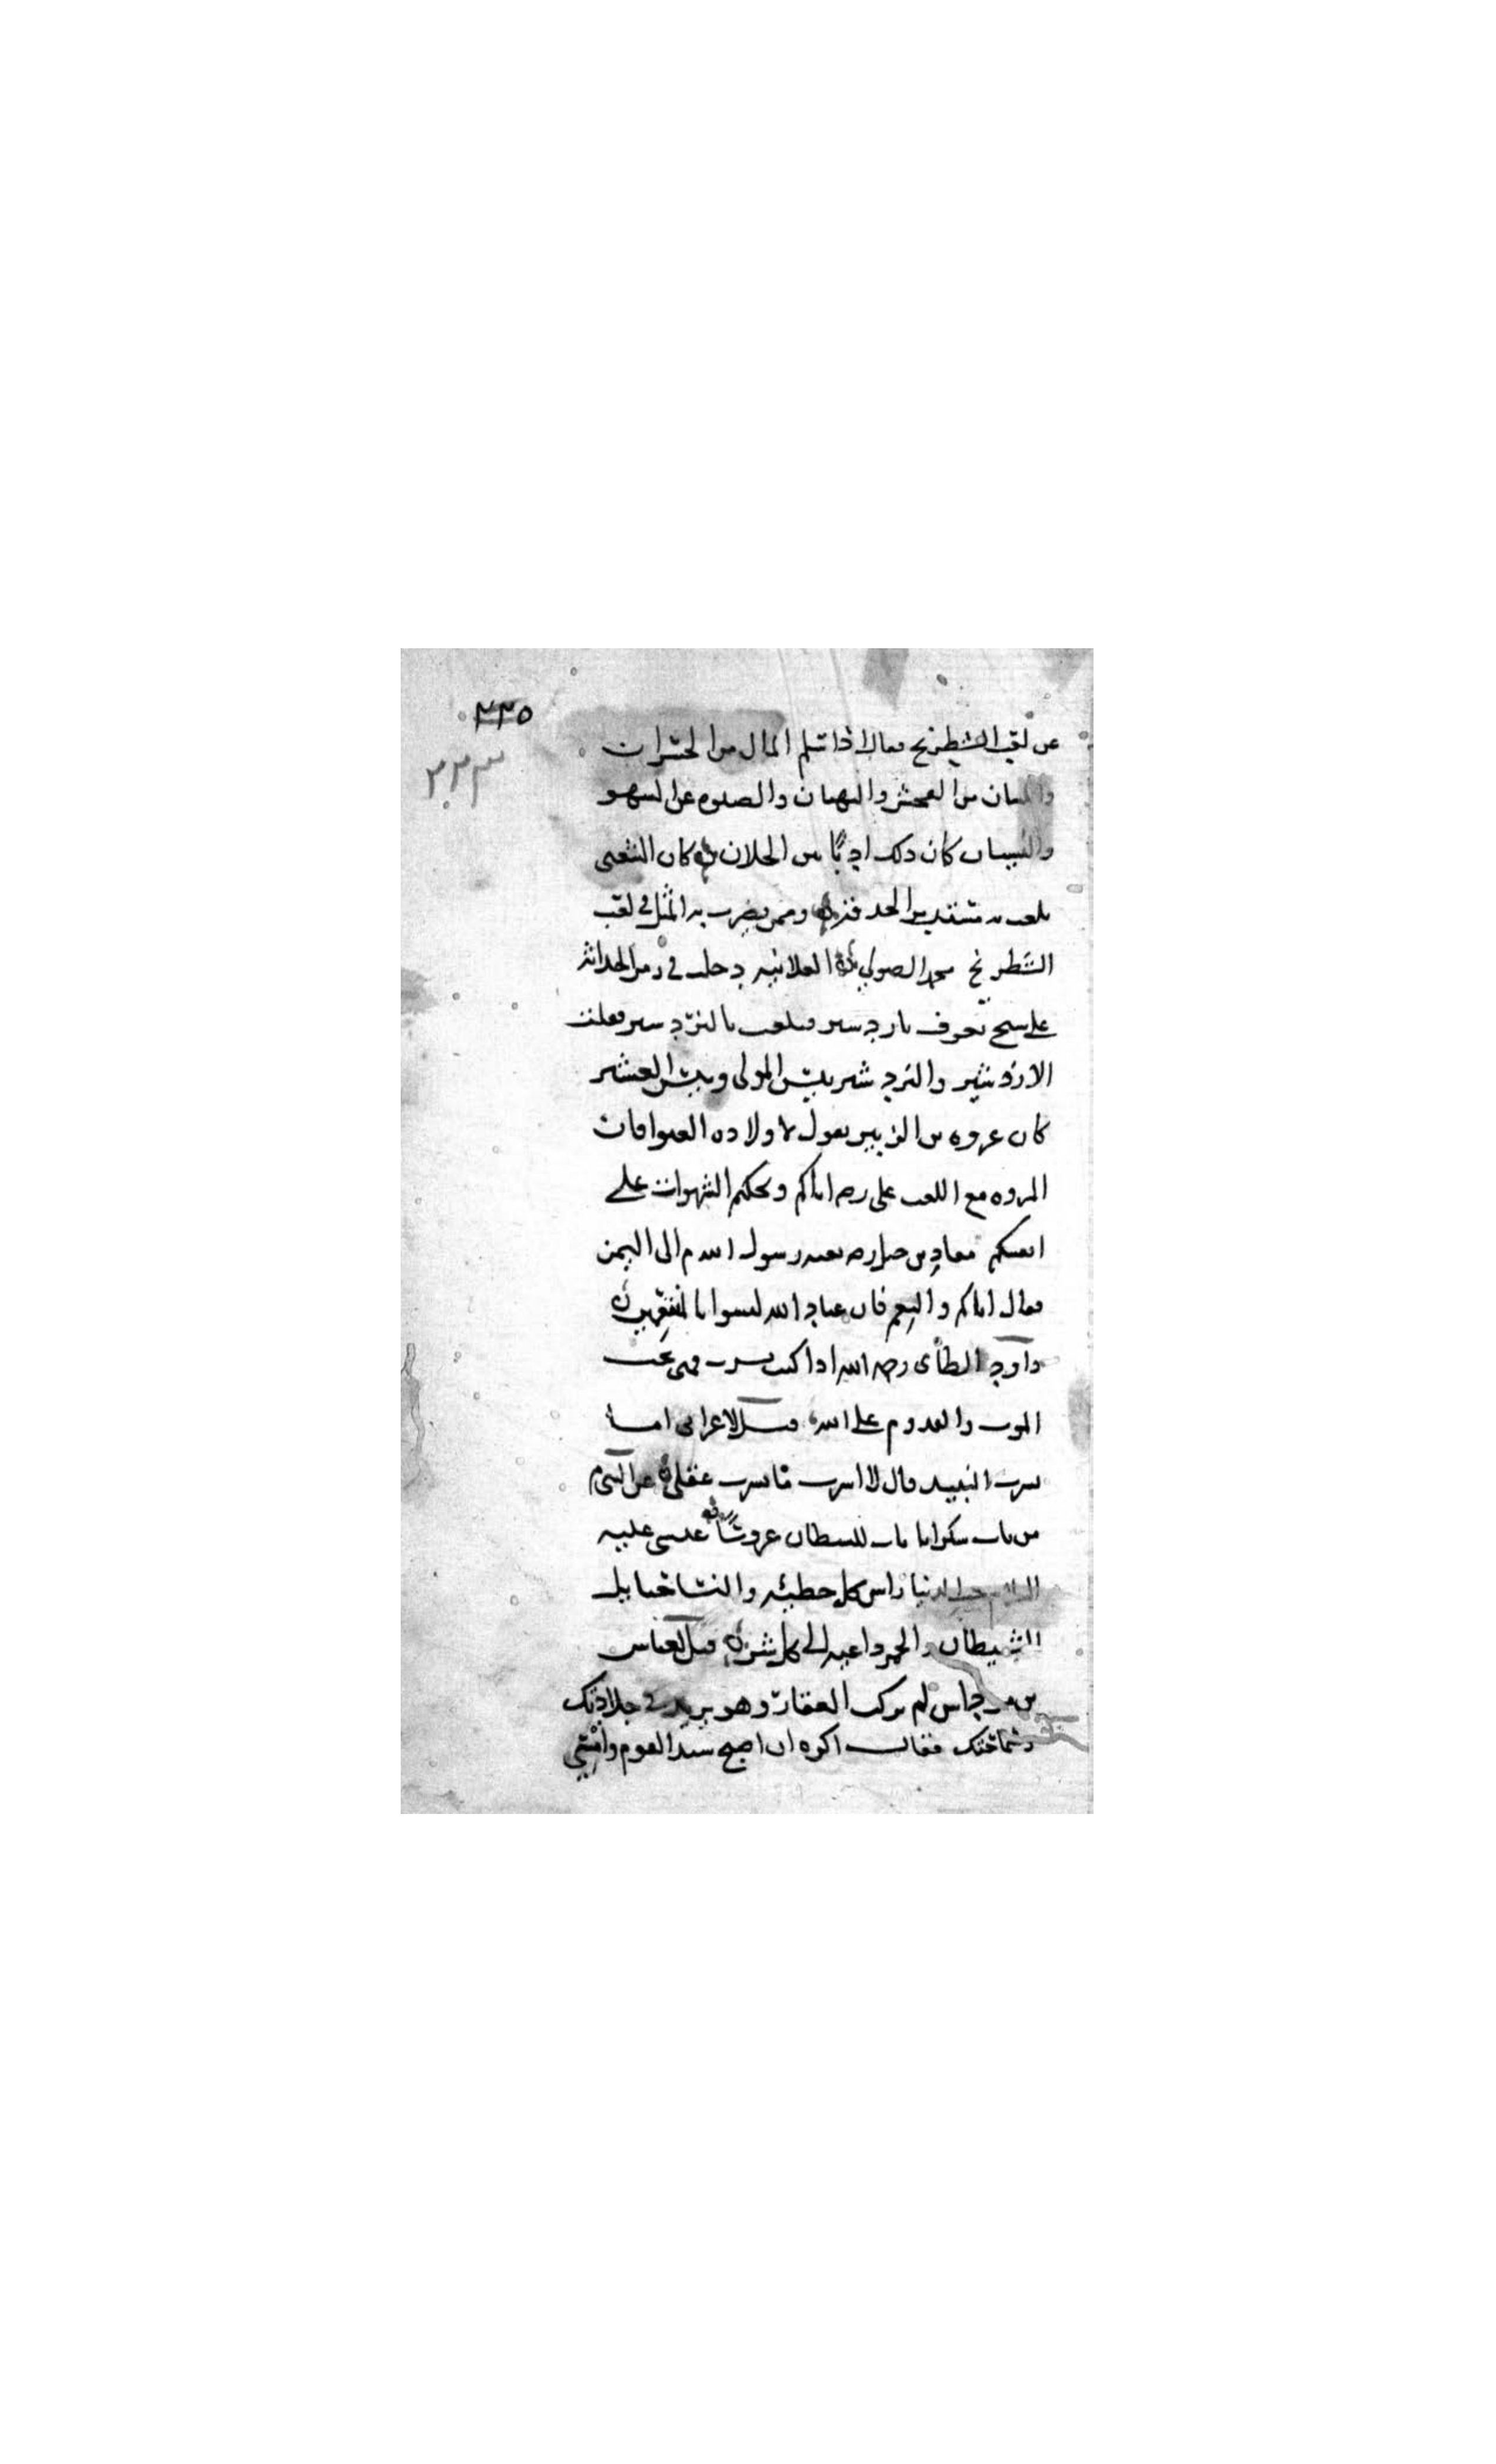 ٢٢٥
٢٢٣
عن لعب الشطرنج فقال اذا سلم المال من الخسران
واللسان من الفحش والبهتان والصلوه عن السهو
والنسيان كان ذلك ادبا بين الخلان كان الشعبي
يلعب به مستند وممن يضرب به المثل في لعب
الشطرنج محمد الصولي العلانيه دخلت في زمن الحداثه
على شيخ يعرف باردشير فيلعب بالنرد شير فقلت
الازدشير والنردشير بئس المولى وبئس العشير
كان عروه بن الزبير يقول لاولاده العبوا فان
المروه مع اللعب على رضه اياكم وتحكيم الشهوات على
انفسكم معاذ بن جبل رضه بعثه رسول الله م الى اليمن
فقال اياكم والتنعم فان عباد الله ليسوا بالمتنعمين
داود الطائي رحمه الله اذا كنت تشرب فمتى تحب
الموت والقدوم على الله قيل لاعرابي اما
تشرب النبيذ قال لا اشرب ما يشرب عقلي عن النبي م
من بات سكرانا بات للشيطان عروسا عيسى عليه
السلام حب الدنيا راس كل خطيئه والنسا حبايل
الشيطان والخمر داعيه الى كل شر قيل لعباس
بن مرداس لم تركت العقار وهو يزيد في جلادتك
وسماحتك فقال اكره ان اصبح سيد القوم وامسي